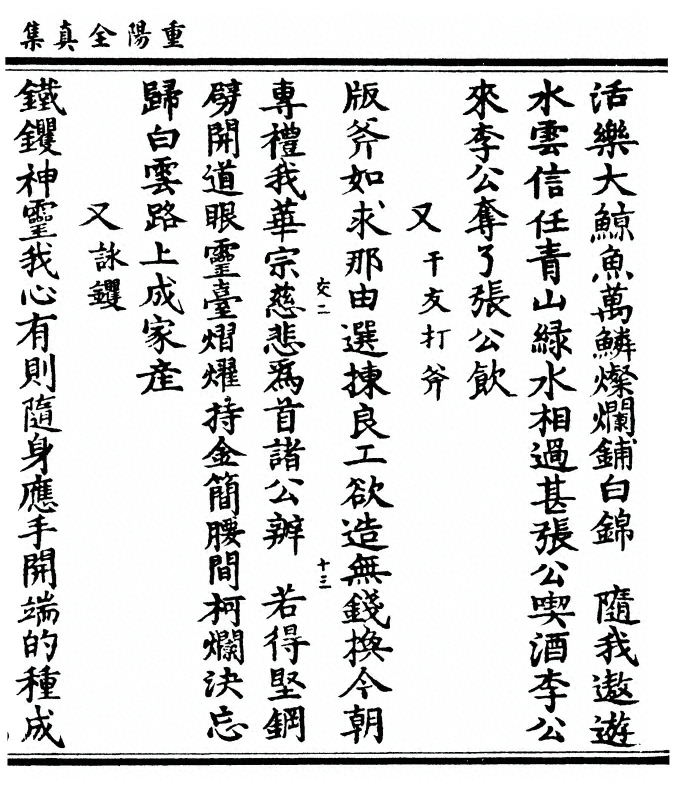 重陽全真集
活樂大鯨魚萬鱗燦爛鋪白錦　隨我遨遊
水雲信任青山綠水相過甚張公喫酒李公
來李公奪了張公飲
又　干友打斧
版斧如求那由選揀良工欲造無錢換今朝
專禮我華宗慈悲爲首諸公辦　若得堅鋼
劈開道眼靈臺熠燿持金簡腰間柯爛決忘
歸白雲路上成家産
又　詠钁
鐵钁神靈我心有則隨身應手開端的種成
交二
十三